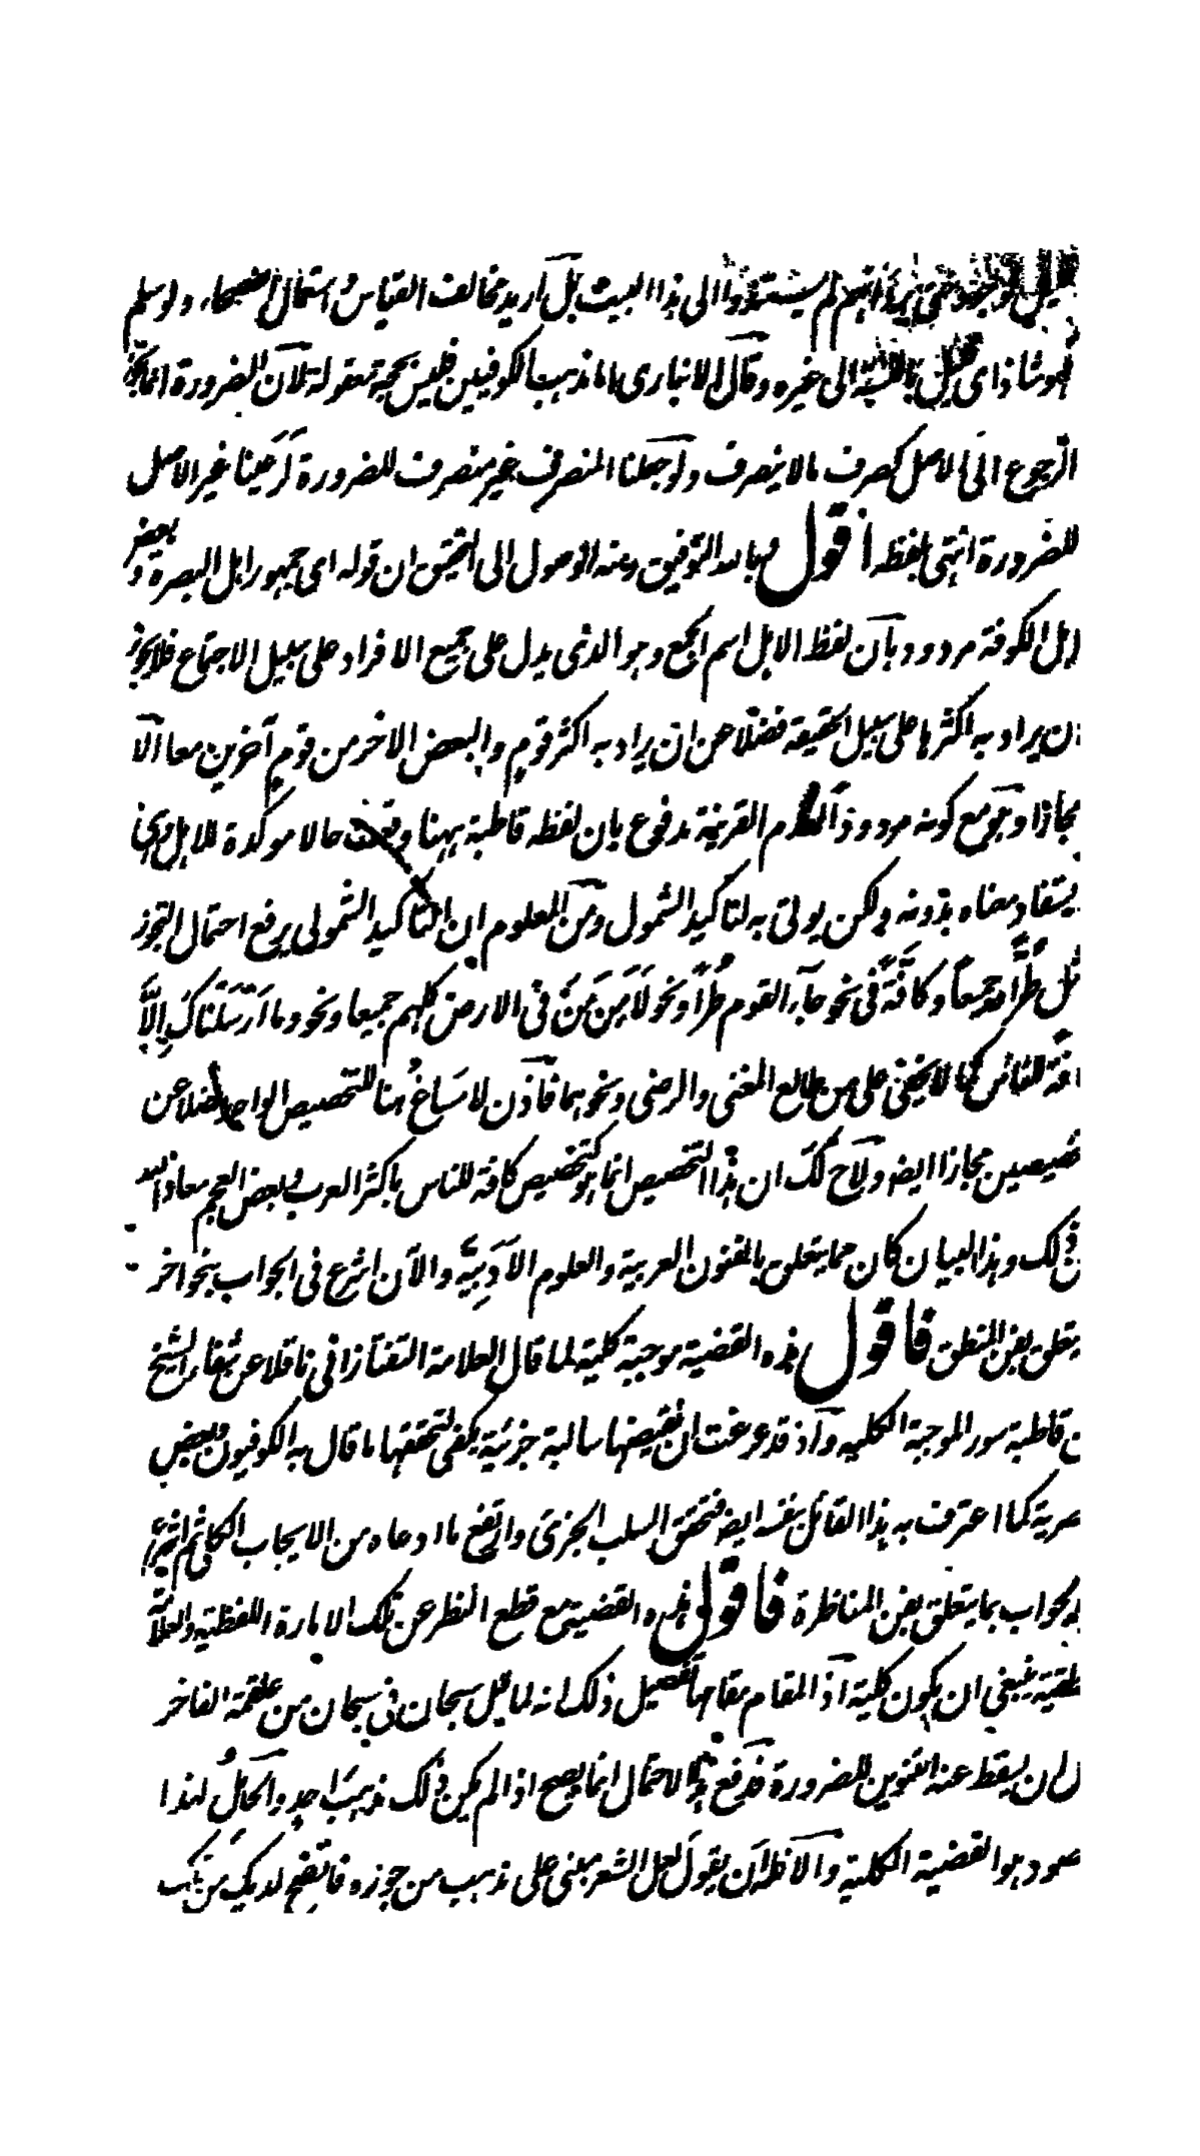 لم يستندوا الى هذا البيت بل اريد مخالف القياس استعمال الفصحاء ولو سلم
فهو شاذ اى قليل بالنسبة الى غيره وقال الانبارى اما مذهب الكوفيين فليس بحجة مقولة لان الضرورة انما تجوز
الرجوع الى الاصل كصرف ما لا ينصرف ولو جعلنا المنصرف غير منصرف للضرورة لرجعنا غير الاصل
للضرورة انتهى بلفظه اقول وبالله التوفيق ومنه الوصول الى التحقيق ان قوله اى جمهور اهل البصرة وبعض
اهل الكوفة مردود بان لفظ الاهل اسم الجمع وهو الذى يدل على جميع الافراد على سبيل الاجتماع فلا يجوز
ان يراد به اكثرها على سبيل الحقيقة فضلا عن ان يراد به اكثر قوم والبعض الاخر من قوم آخرين معا الا
مجازا وهو مع كونه مردودا القرينة مدفوع بان لفظه قاطبة ههنا وقعت حالا موكدة للاهل وهى
يستفاد معناه بدونه ولكن يوتى به لتاكيد الشمول ومن المعلوم ان التاكيد الشمولى يرفع احتمال التجوز
مثل طُرًّا وجميعًا وكافّةً فى نحو جآء القوم طُرًّا ونحو لَآمَنَ مَنْ فى الارض كلهم جميعا ونحو وما اَرْسَلْنَاكَ اِلاَّ
افة للناس كما لا يخفى على من طالع المغنى والرضى ونحوهما فاذن لا مساغ هنا للتخصيص الواحد فضلا عن
خصيصين مجازا ايضا ولاح لك ان هذا التخصيص انما هو كتخصيص كافة للناس باكثر العرب وبعض العجم معاذ الله
ن ذلك وهذا البيان كان مما يتعلق بالفنون العربية والعلوم الادبيّة والآن اشرع فى الجواب بنحو اخر
يتعلق بفن المنطق فاقول هذه القضية موجبة كلية لما قال العلامة التفتازانى ناقلا عن شفاء الشيخ
ن قاطبة سور الموجبة الكلية واذ قد عرفت ان نقيضها سالبة جزئية يكفى لتحققها ما قال به الكوفيون وبعض
صرية كما اعترف به هذا القائل بنفسه ايضا فتحقق السلب الجزئ وارتفع ما ادعاه من الايجاب الكلى ثم اشرع
لجواب بما يتعلق بفن المناظرة فاقول هذه القضية مع قطع النظر عن تلك الامارة اللفظية والعلامة
نطقية ينبغى ان يكون كلية اذ المقام مقامها تفصيل ذلك انه لما قيل سبحان فى سبحان من علقمة الفاخر
ل ان يسقط عنه التنوين للضرورة فدفع هذا الاحتمال انما يصح اذا لم يكن ذلك مذهب احد والحال لهذا
صود هو القضية الكلية والا فله ان يقول لعل الشعر مبنى على مذهب من جوزه فاتضح لديك من تلك